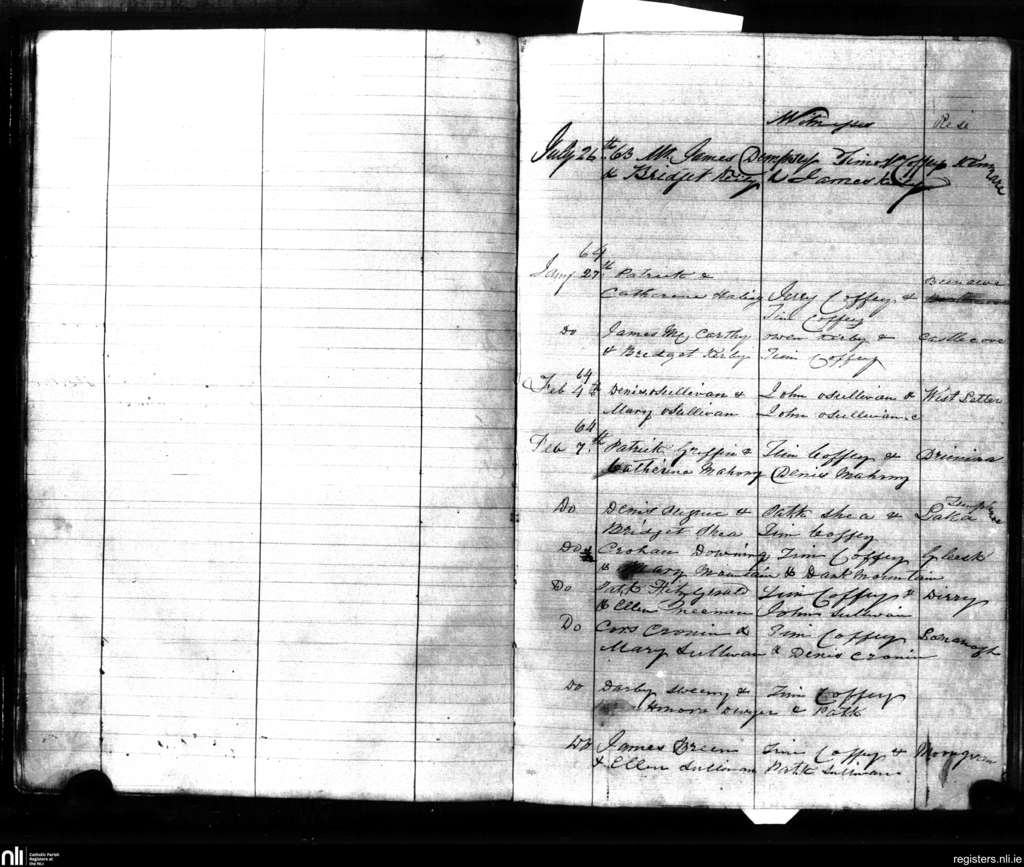 Witnesses Resi
July 26th 63 Mr. James Dempsey Timot Coffey Kenmare
& Bridget Kirby & James Kirby
64
Jany 27th Patrick &
Catherine Haley Jerry Coffey &
Tim Coffey
Do James Mc Carthy Owen Kirby & Castlecove
& Bridget Kirby Tim Coffey
64
Feb 4th Denis oSullivan & John oSullivan & West Letter
Mary oSullivan John oSullivan
64
Feb 7th Patrick Griffin & Tim Coffey &
Catherine Mahony Denis Mahony
Do Denis & Patk Shea &
Bridget Shea Tim Coffey
Do Crohan Downing Tim Coffey
& Mary Mountain & Dan Mountain
Do Patk Fitzgerald Tim Coffey & Derry
& Ellen Freeman John Sullivan
Do Cors Cronin & Tim Coffey
Mary Sullivan & Denis Cronin
Do Darby Sweeny & Tim Coffey
Honora Dwyer & Patk
Do James Breen Tim Coffey &
& Ellen Sullivan Patk Sullivan
nli Catholic Parish
Registers at
the NLI
registers.nli.ie